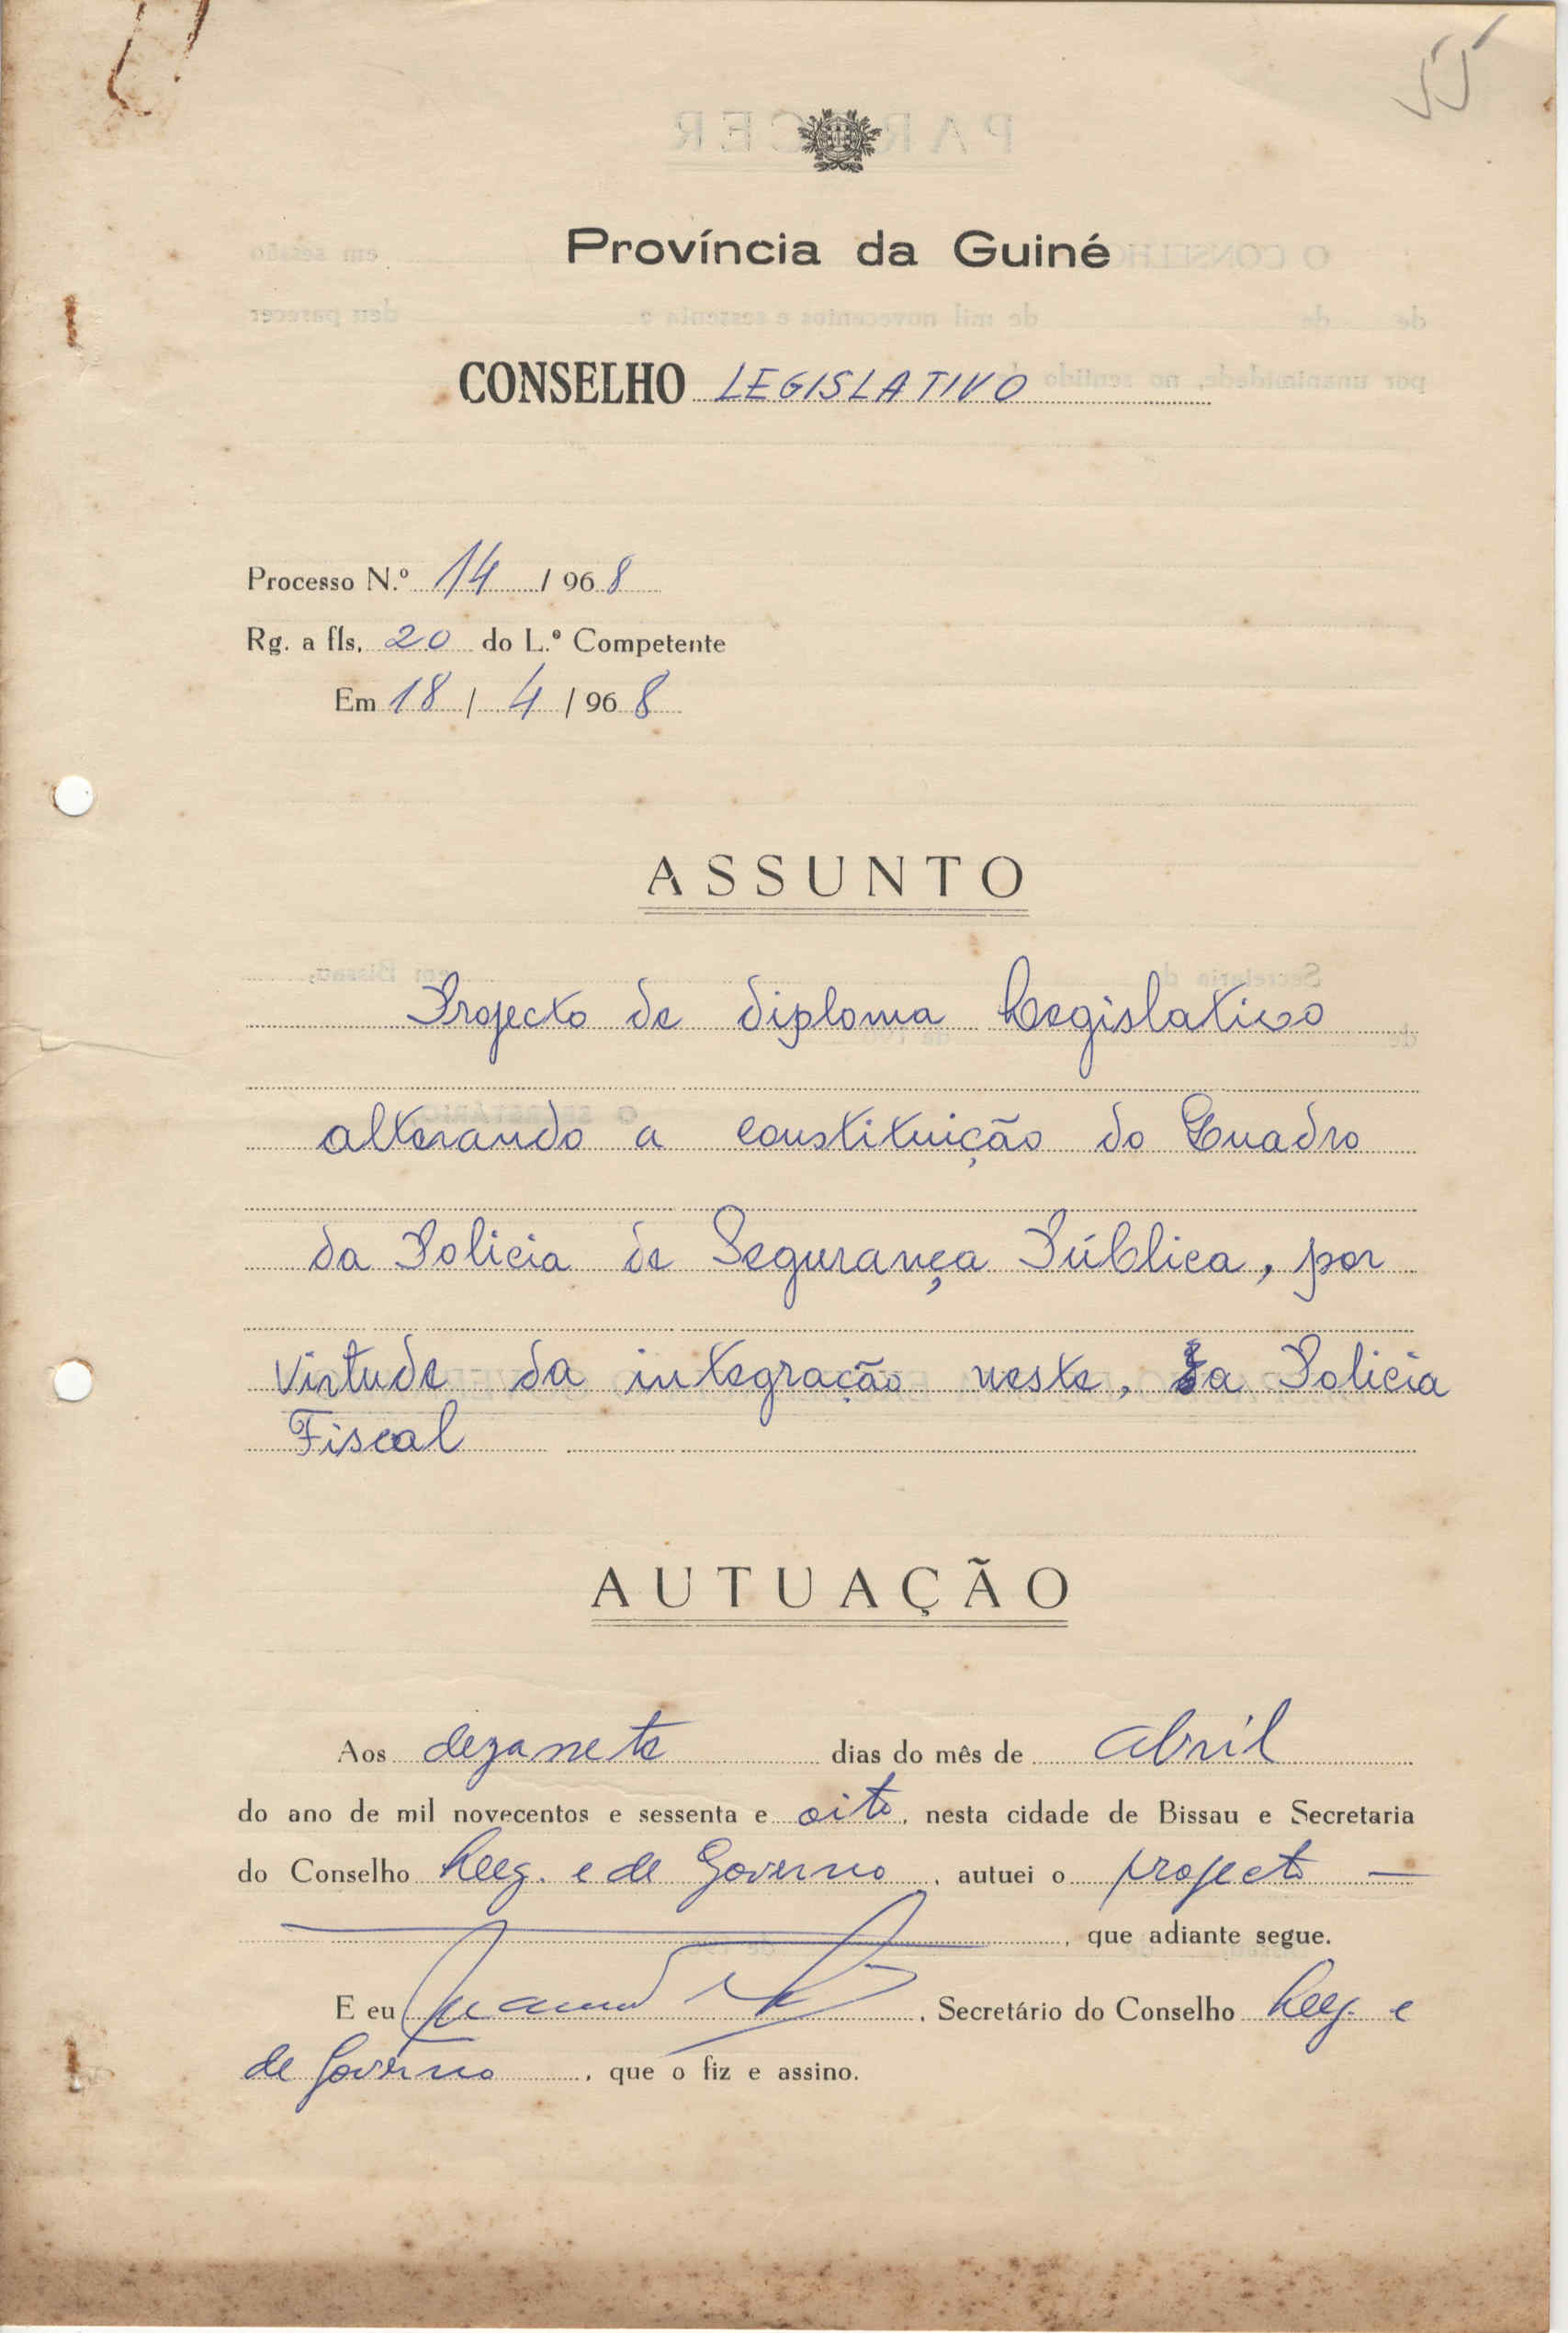 55
Província da Guiné
CONSELHO LEGISLATIVO
Processo N.º 14 / 968
Rg. a fls. 20 do L.º Competente
Em 18 / 4 / 968
ASSUNTO
Projecto de diploma Legislativo
alterando a constituição do Quadro
da Policia de Segurança Pública, por
virtude da integração neste, da Policia
Fiscal
AUTUAÇÃO
Aos dezanete dias do mês de abril
do ano de mil novecentos e sessenta e oito, nesta cidade de Bissau e Secretaria
do Conselho Leg. e de Governo, autuei o projecto —
, que adiante segue.
E eu , Secretário do Conselho Leg. e
de Governo, que o fiz e assino.